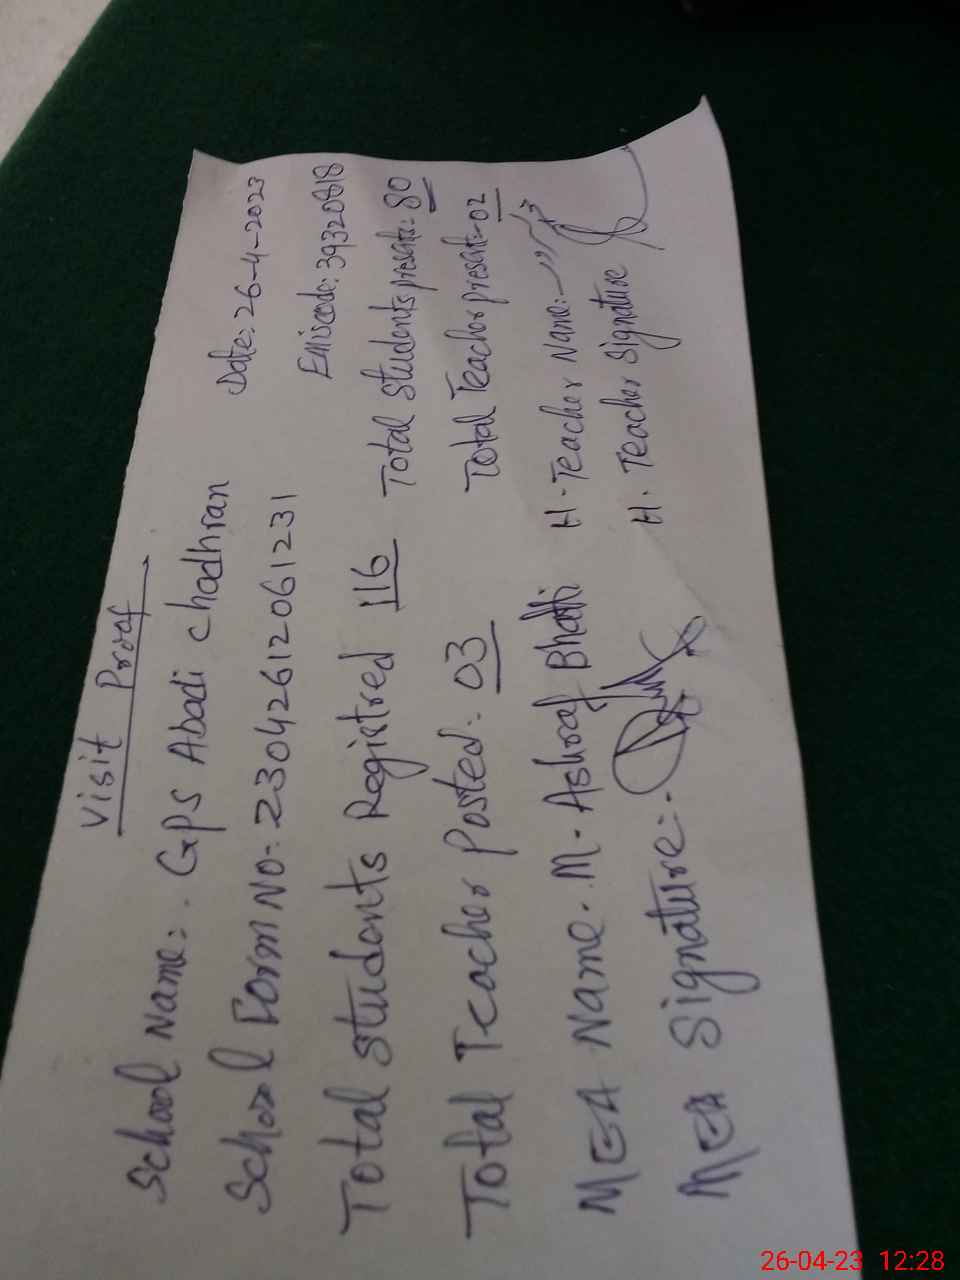 Visit Proof
School Name:. GPS Abadi chadhran Date: 26-4-2023
School Form No: 23042612061231 Emiscode: 39320818
Total students Registred 116 Total students present= 80
Total Teacher Posted: 03 Total Teacher present=02
MEA Name. M. Ashraf Bhatti H. Teacher Name:-
MEA Signature:- H. Teacher Signature
26-04-23 12:28